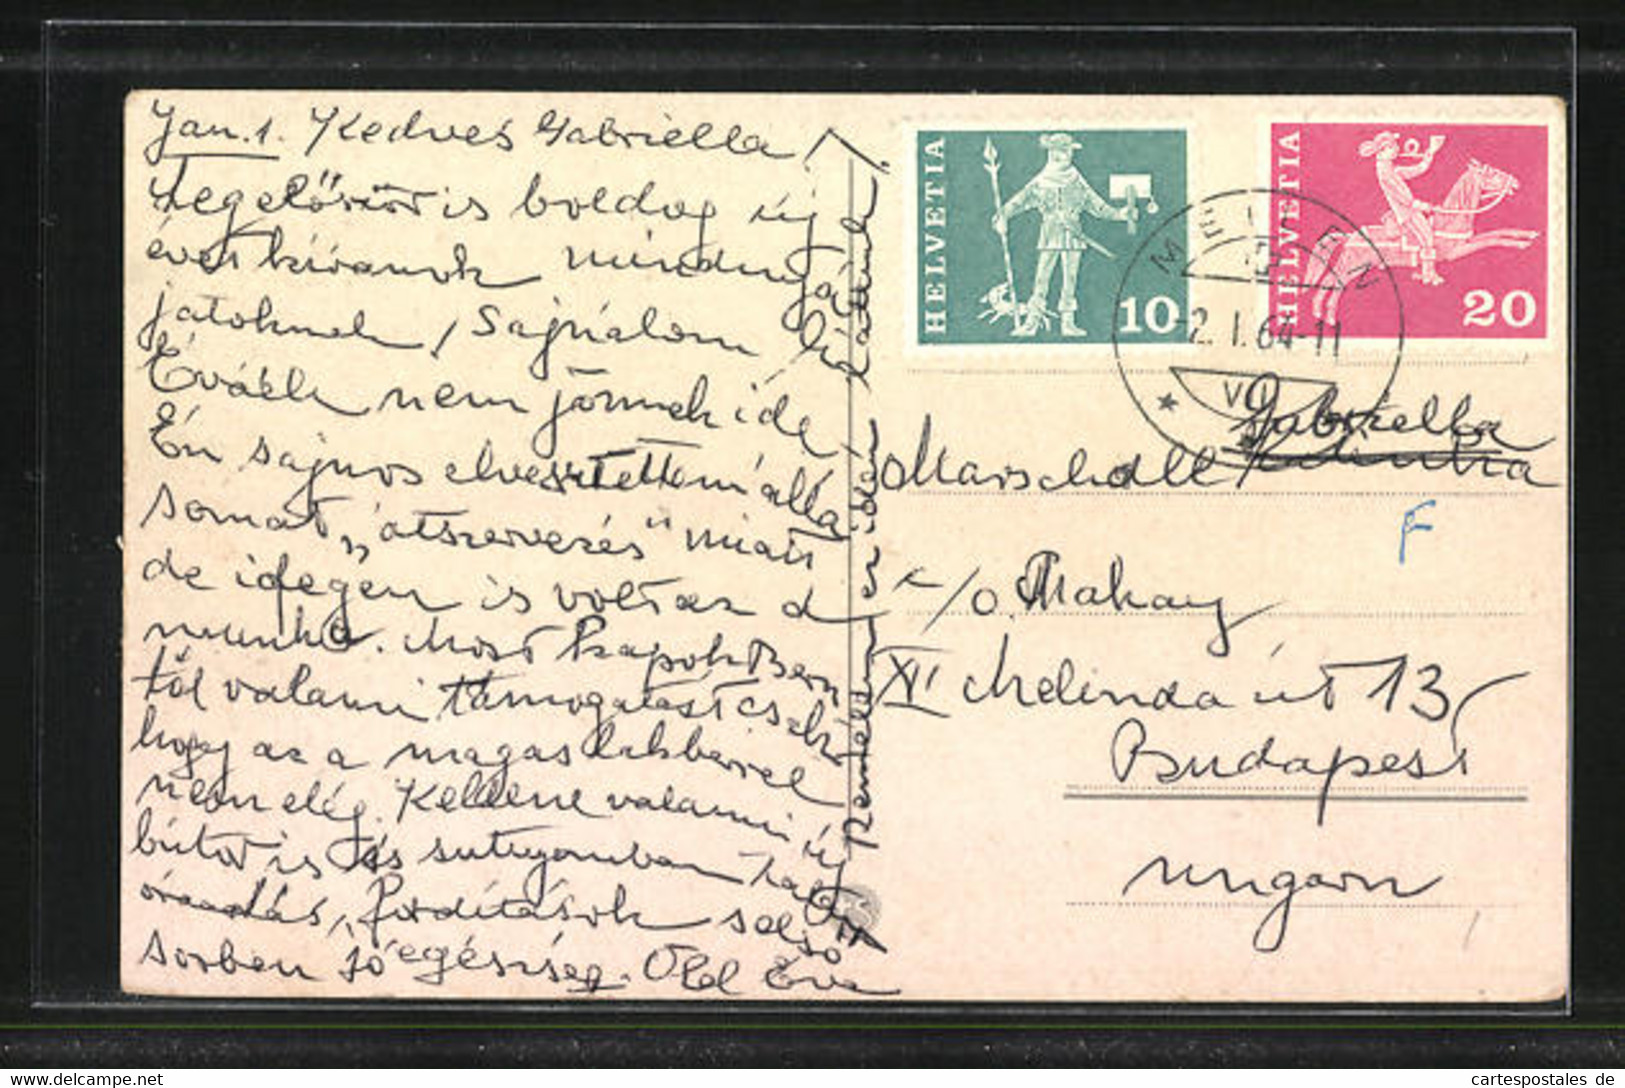 Jan. 1. Kedves Gabriella!
Legelőször is boldog új
évet kívánok mindnyá-
jatoknak, sajnálom hogy
Éváék nem jönnek ide
Én sajnos elvesztettem állá
somat „átszervezés" miatt
de idegen is volt az a
munka. Most kapok Bern
től valami támogatást csak
hogy az a magas lakbérrel
nem elég. Kellene valami új
bútor is és
óraadás, fordítások
sorban jó egészség. Ölel Éva
HELVETIA
10
HELVETIA
20
MEILEN
-2.I.64-11
Gabriella
Marschall
F
c/o. Makay
XII Melinda út 13
Budapest
Ungarn
cartespostales de